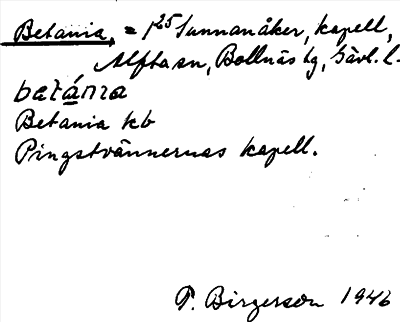 Betania, = 1²⁵ Sunnanåker, kapell,
Alfta sn, Bollnäs tg, Gävl. l.
betánıa
Betania kb
Pingstvännernas kapell.
P. Birgerson 1946